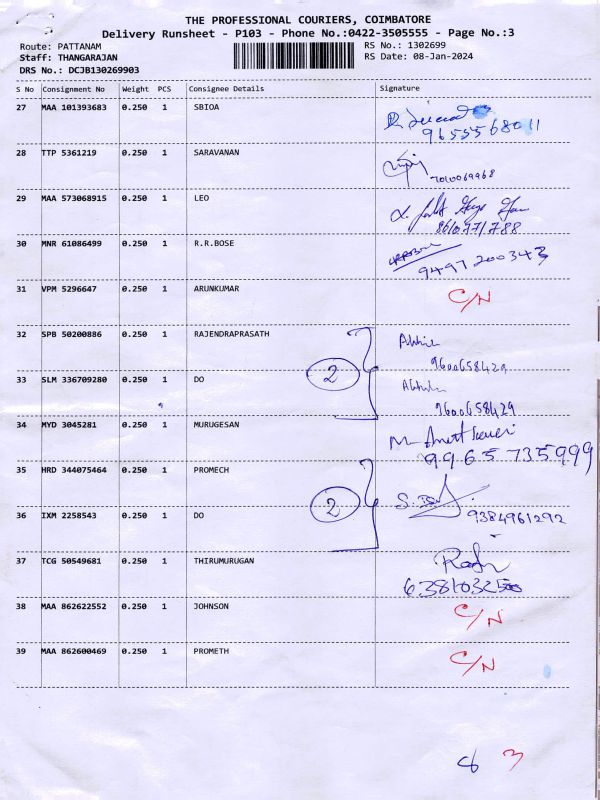 THE PROFESSIONAL COURIERS, COIMBATORE
Delivery Runsheet - P103 - Phone No.:0422-3505555 - Page No.:3
Route: PATTANAM RS No.: 1302699
Staff: THANGARAJAN RS Date: 08-Jan-2024
DRS No.: DCJB130269903
S No Consignment No Weight PCS Consignee Details Signature
27 MAA 101393683 0.250 1 SBIOA
9655568011
28 TTP 5361219 0.250 1 SARAVANAN
7010069968
29 MAA 573068915 0.250 1 LEO
8610771788
30 MNR 61086499 0.250 1 R.R.BOSE
9497200343
31 VPM 5296647 0.250 1 ARUNKUMAR C/N
32 SPB 50200886 0.250 1 RAJENDRAPRASATH
9600658429
2
33 SLM 336709280 0.250 1 DO
9600658429
34 MYD 3045281 0.250 1 MURUGESAN
9965735999
35 HRD 344075464 0.250 1 PROMECH
2
36 IXM 2258543 0.250 1 DO 9384961292
37 TCG 50549681 0.250 1 THIRUMURUGAN
38 MAA 862622552 0.250 1 JOHNSON C/N
39 MAA 862600469 0.250 1 PROMETH C/N
3